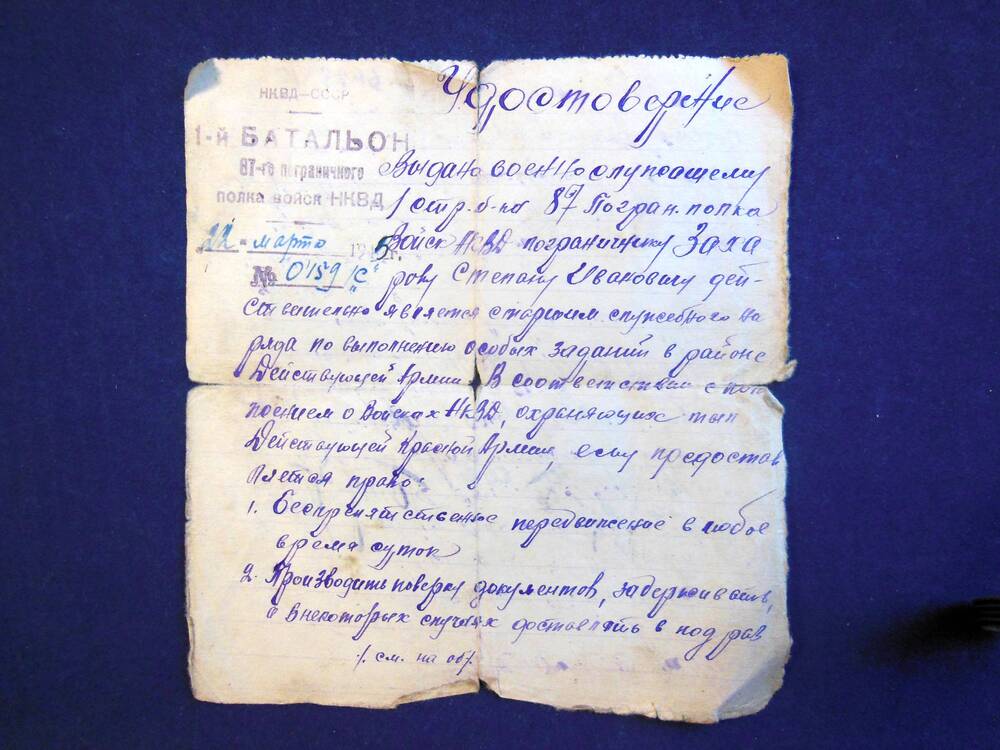 НКВД—СССР
1-й БАТАЛЬОН
87-го пограничного
полка войск НКВД
22 марта 1945г.
№ 0159/с
Удостоверение
Выдано военнослужащему
1 стр. б-на 87 Погран. полка
Войск НКВД пограничнику Заха
рову Степану Ивановичу дей-
ствительно является старшим служебного на
ряда по выполнению особых заданий в районе
Действующей Армии. В соответствии с поло
жением о Войсках НКВД, охраняющих тыл
Действующей Красной Армии, ему предостав
ляется право:
1. Беспрепятственное передвижение в любое
время суток
2. Производить поверку документов, задерживать,
и в некоторых случаях доставлять в подраз
/. см. на об/.